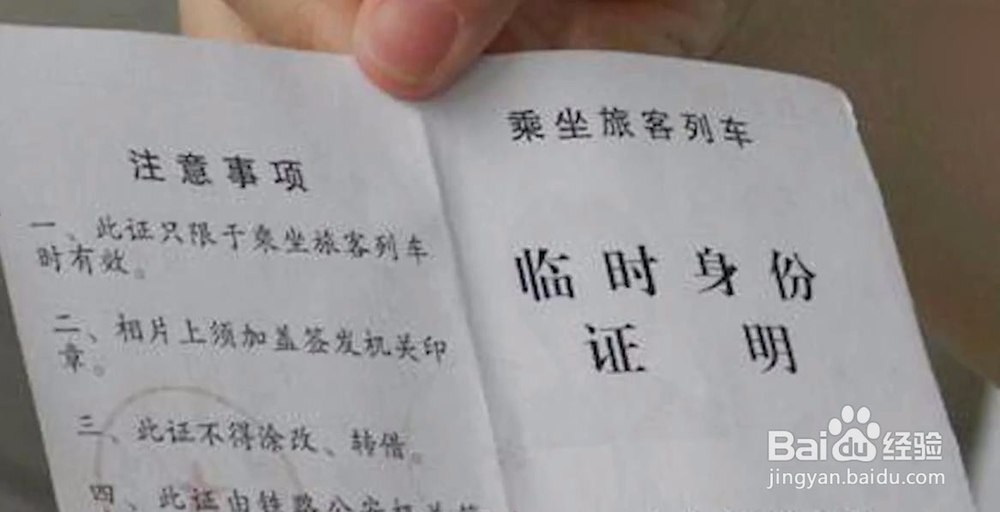 注意事项
一、此证只限于乘坐旅客列车
时有效。
二、相片上须加盖签发机关印
章。
三、此证不得涂改、转借。
四、此证由铁路公安机关签
乘坐旅客列车
临时身份
证明
Baidu经验
jingyan.baidu.com